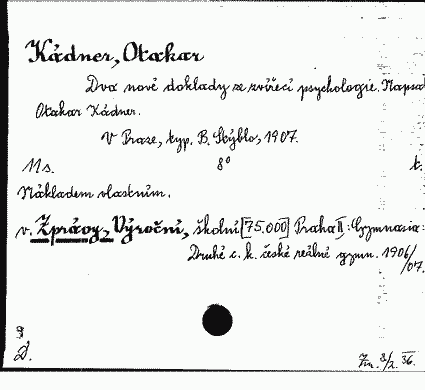 Kádner, Otakar
Dva nové doklady ze zvířecí psychologie. Napsal
Otakar Kádner.
V Praze, typ. B. Stýblo, 1907.
11 s. 8° t.
Nákladem vlastním.
v. Zprávy, Výroční, školní [75.000] Praha II: Gymnasia:
Druhé c. k. české reálné gymn. 1906/
/07.
D. 3/2. 36.